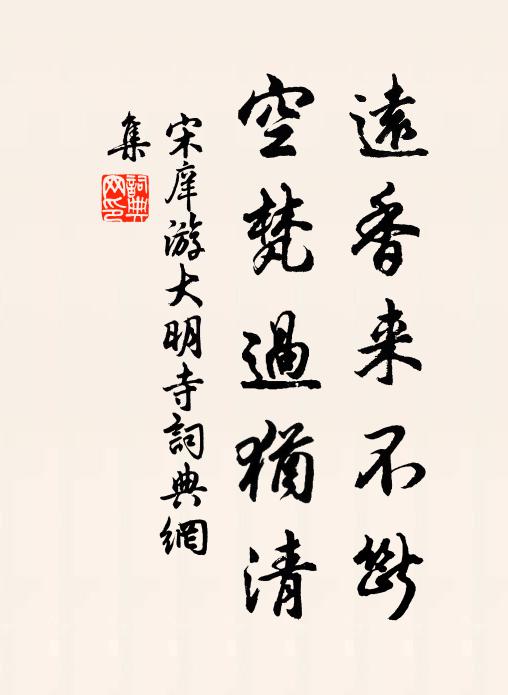 遠香来不斷
空梵過猶清
宋庠游大明寺詞典網
集
詞典
网印